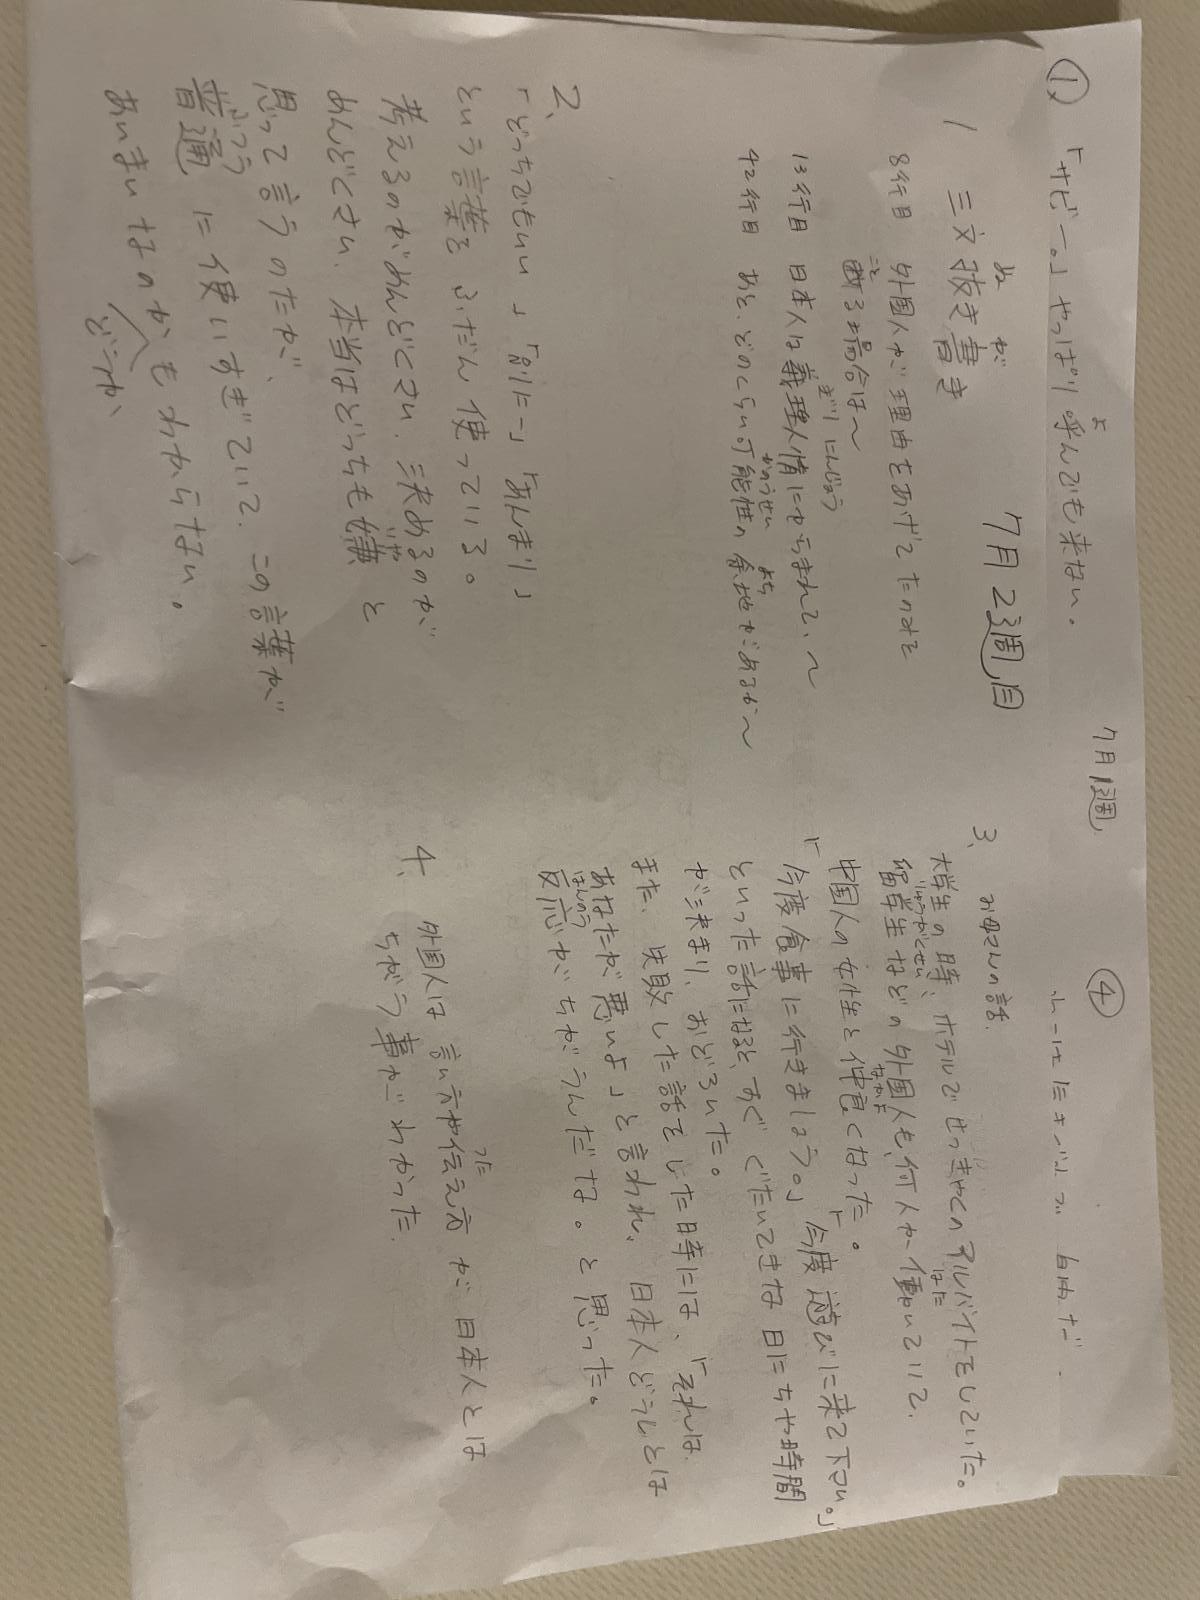 7月1週
① 「サビー。」やっぱり呼んでも来ない。
よ
7月2週目
1 三文抜き書き
ぬ が
8行目 外国人が理由をあげてたのみを
断る場合は〜
こと
13行目 日本人は義理人情にからまれて、〜
ぎり にんじょう
42行目 あと、どのくらい可能性の余地があるか〜
かのうせい よち
2、
「どっちでもいい」「別に〜」「あんまり」
という言葉を ふだん使っている。
考えるのがめんどくさい、決めるのが
めんどくさい、本当はどっちも嫌と
いや
思って言うのだが、
普通に使いすぎていて、この言葉が
ふつう
あいまいなのかもわからない。
どうか
④
3、 お母さんの話
大学生の時、ホテルでせっきゃくのアルバイトをしていた。
留学生などの外国人も何人か働いていて、
りゅうがくせい はた
中国人の女性と仲良くなった。
なかよ
「今度食事に行きましょう。」「今度遊びに来て下さい。」
といった話になると、すぐぐたいてきな日にちや時間
が決まり、おどろいた。
また、失敗した話をした時には、「それは
あなたが悪いよ」と言われ、日本人どうしとは
反応がちがうんだな。と思った。
はんのう
4、 外国人は 言い方や伝え方が 日本人とは
つた
ちがう事がわかった